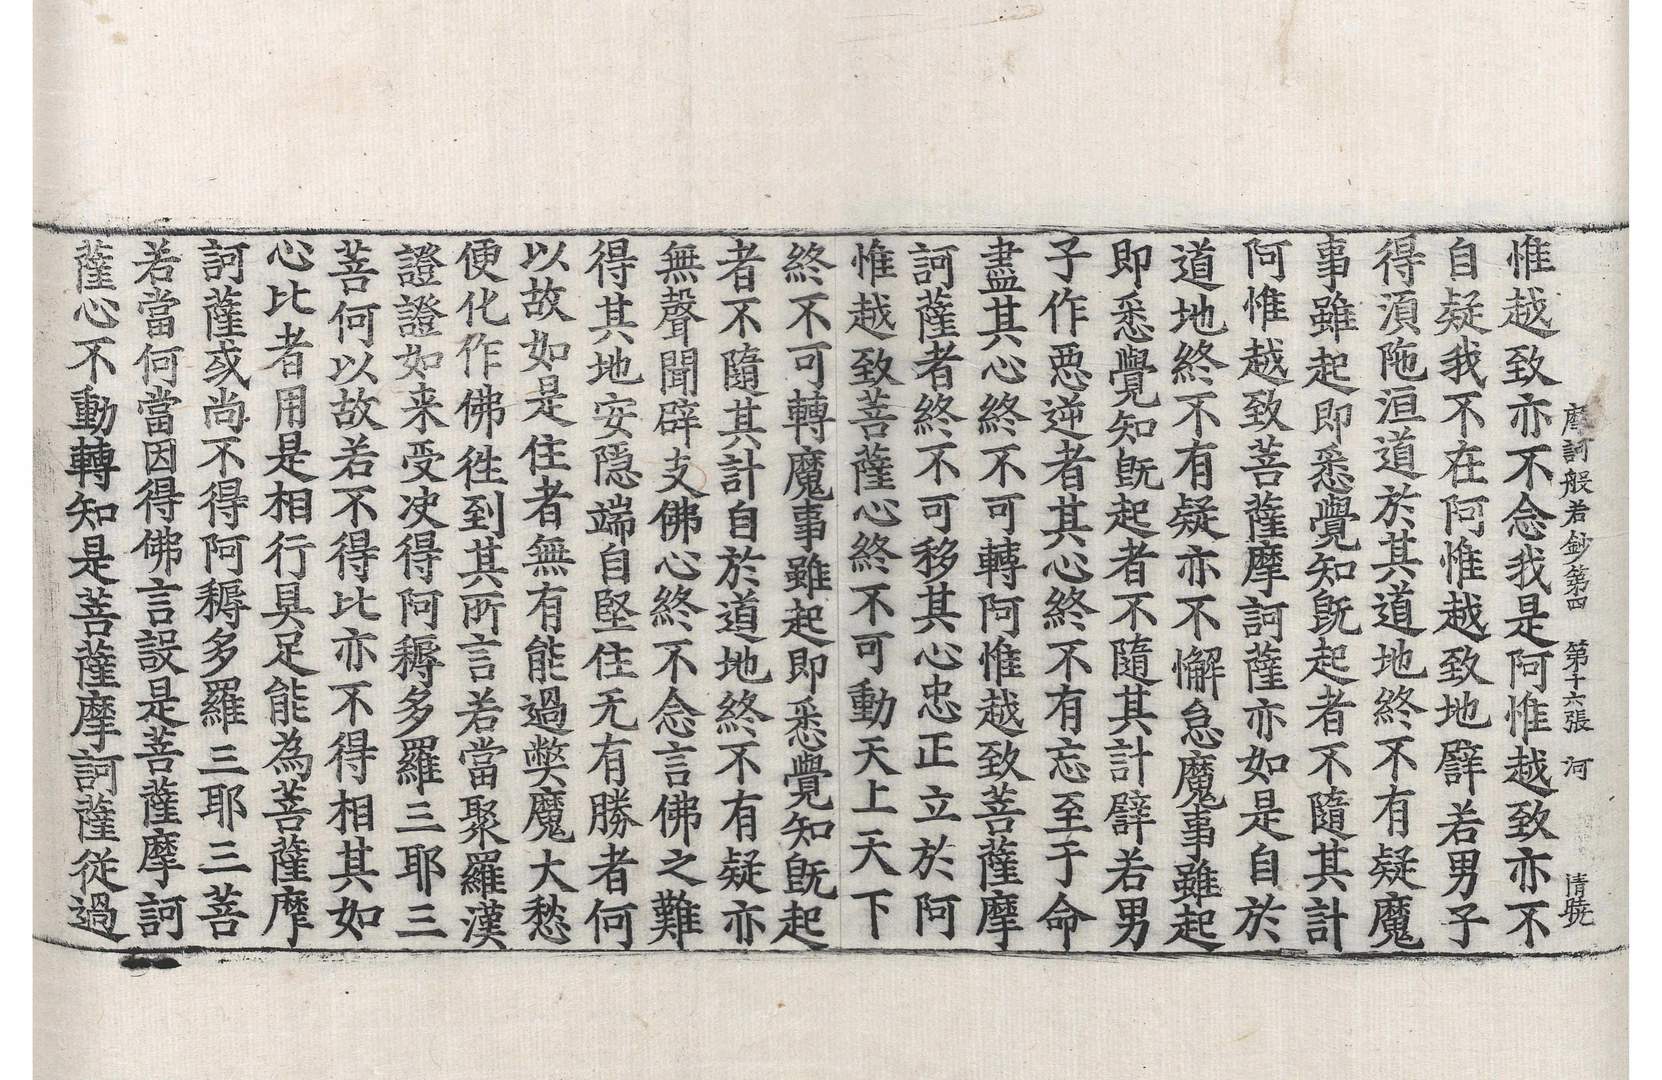 摩訶般若鈔第四　第十六張　河　清曉
惟越致亦不念我是阿惟越致亦不
自疑我不在阿惟越致地譬若男子
得湏陁洹道於其道地終不有疑魔
事雖起即悉覺知旣起者不隨其計
阿惟越致菩薩摩訶薩亦如是自於
道地終不有疑亦不懈怠魔事雖起
即悉覺知旣起者不隨其計譬若男
子作惡逆者其心終不有忘至于命
盡其心終不可轉阿惟越致菩薩摩
訶薩者終不可移其心忠正立於阿
惟越致菩薩心終不可動天上天下
終不可轉魔事雖起即悉覺知旣起
者不隨其計自於道地終不有疑亦
無聲聞辟支佛心終不念言佛之難
得其地安隱端自堅住无有勝者何
以故如是住者無有能過弊魔大愁
便化作佛徃到其所言若當聚羅漢
證證如来受决得阿耨多羅三耶三
菩何以故若不得比亦不得相其如
心比者用是相行具足能為菩薩摩
訶薩或尚不得阿耨多羅三耶三菩
若當何當因得佛言設是菩薩摩訶
薩心不動轉知是菩薩摩訶薩從過